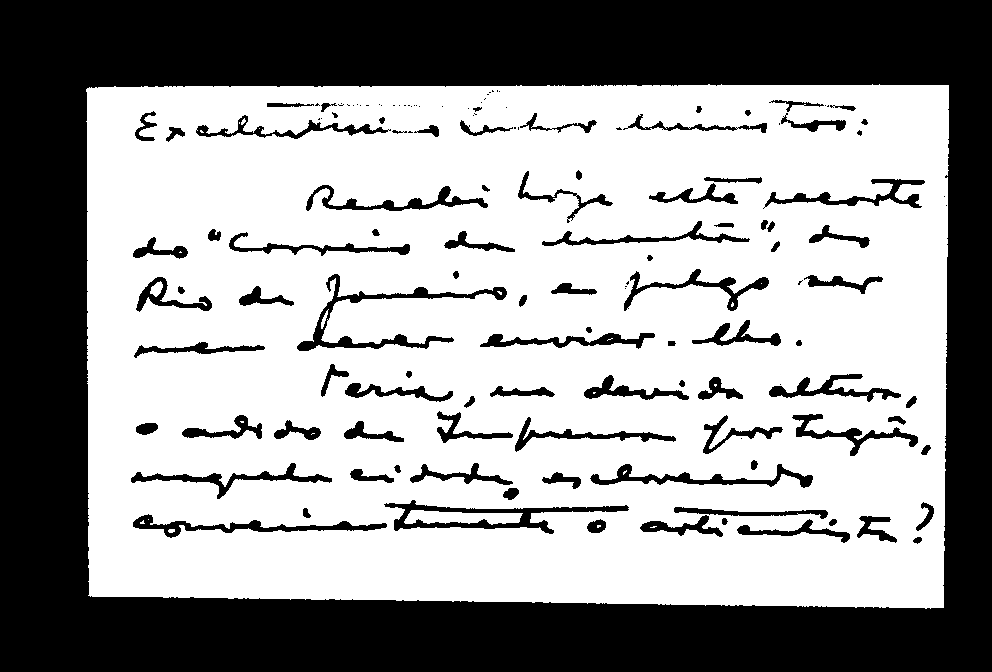 Excelentíssimo Senhor Ministro:
Recebi hoje este recorte
do "Correio da Manhã", do
Rio de Janeiro, e julgo ser
meu dever enviar-lho.
Teria, na devida altura,
o adido de Imprensa português,
naquela cidade, esclarecido
convenientemente o articulista?